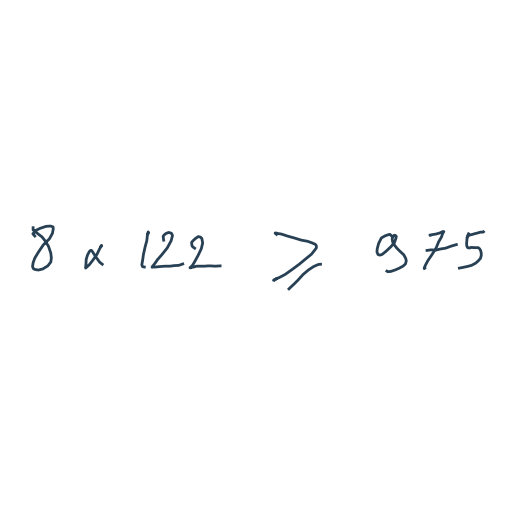 8 × 122 ⩾ 975